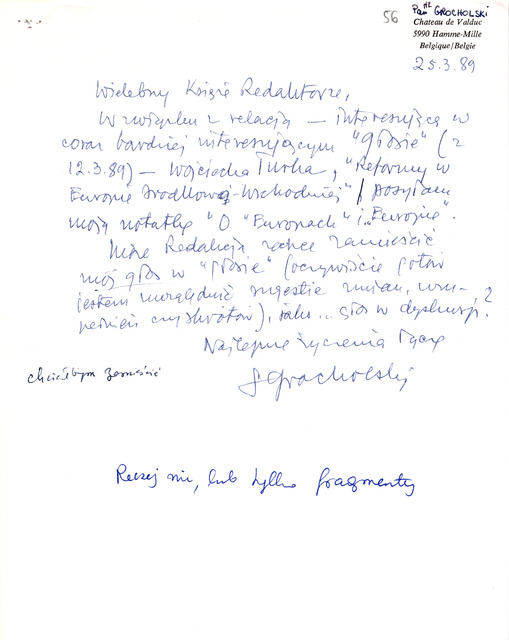 56
Pan GROCHOLSKI
Chateau de Valduc
5990 Hamme-Mille
Belgique/Belgie
25.3.89
Wielebny Księże Redaktorze,
W związku z relacją — interesującą w
coraz bardziej interesującym "głosie" (z
12.3.89) — Wojciecha Turka, "Reformy w
Europie Środkowo-Wschodniej" posyłam
moją notatkę "O "Europach" i "Europie".
Może Redakcja zechce zamieścić
mój głos w "głosie" (oczywiście gotów
jestem uwzględnić sugestie zmian, uzu-
pełnień czy skrótów), jako... głos w dyskusji?
Najlepsze życzenia łączę
Grocholski
chciałbym zamieścić
Raczej nie, lub tylko fragmenty